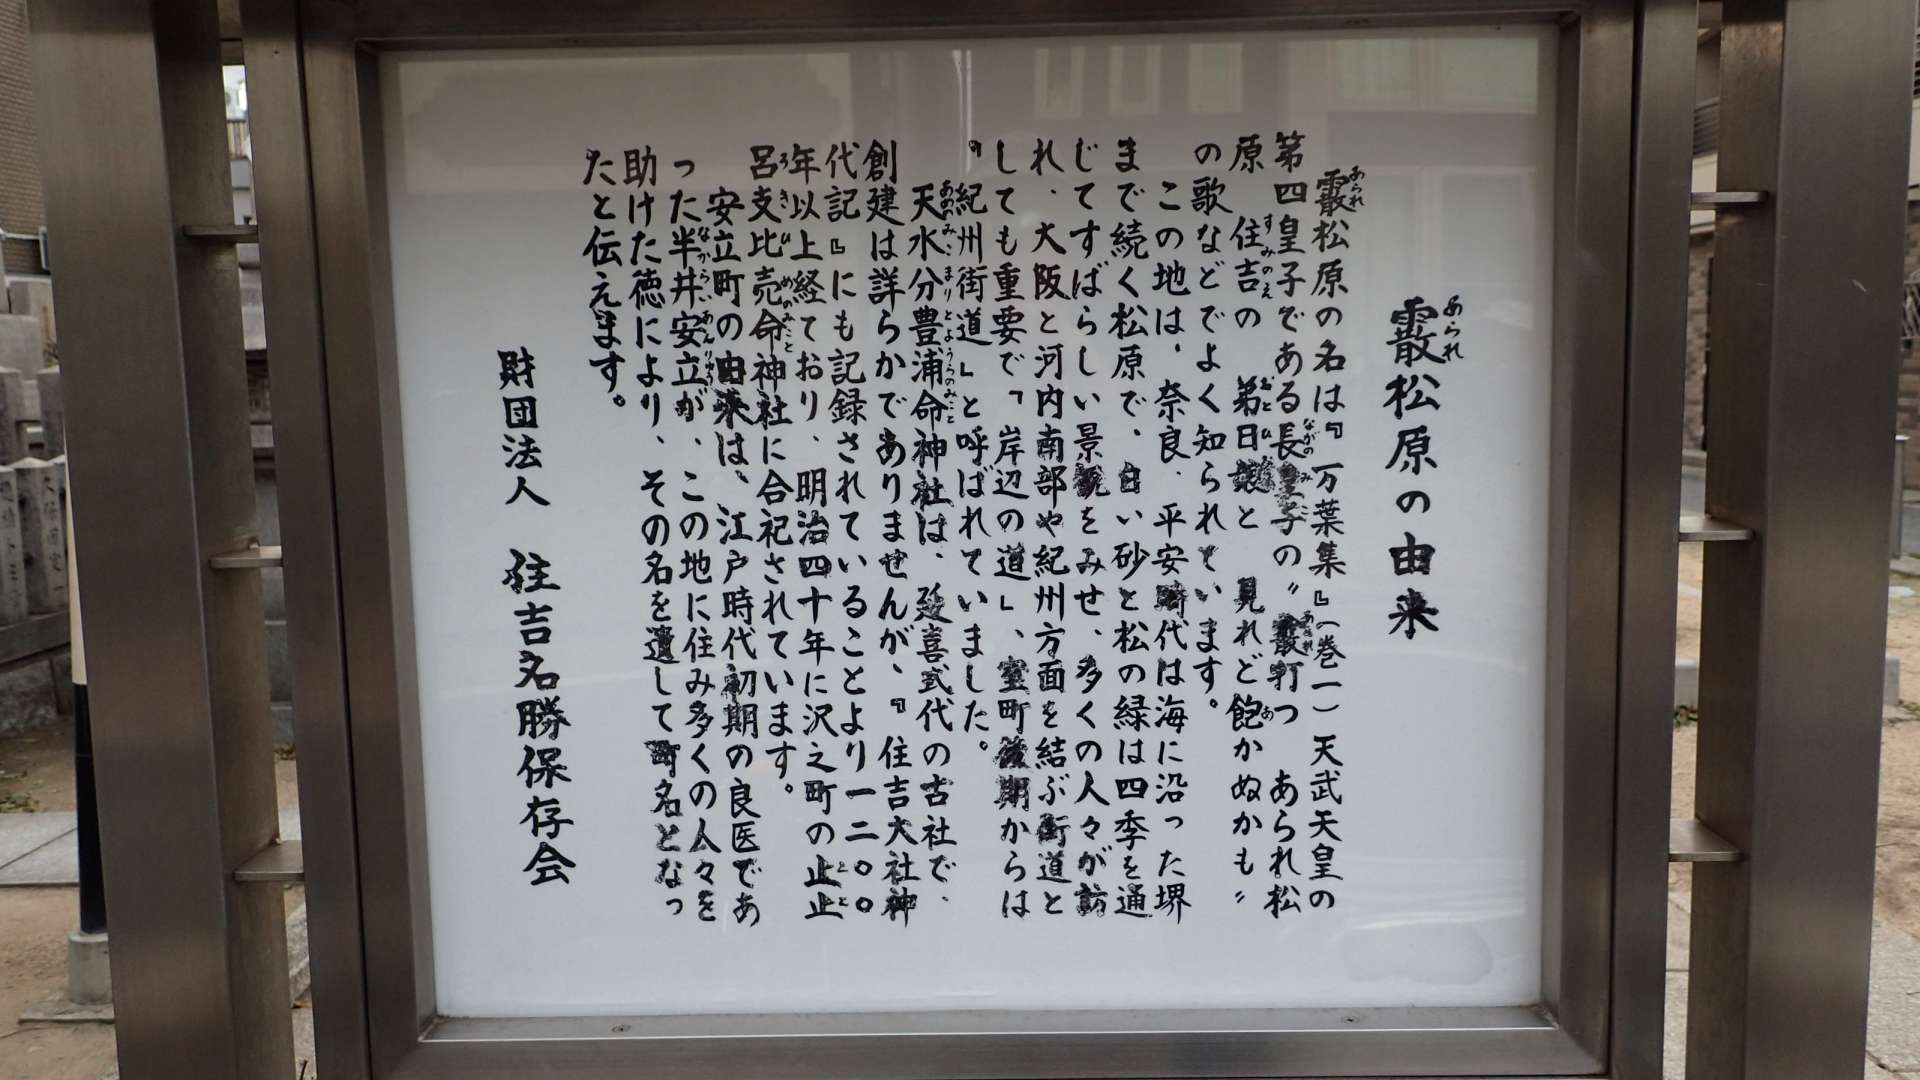 霰松原の由来
あられ
霰松原の名は『万葉集』(巻一)天武天皇の
あられ
第四皇子である長皇子の〝霰打つ あられ松
ながのみこ あられ
原 住吉の 弟日娘と 見れど飽かぬかも〟
すみのえ おとひ あ
の歌などでよく知られています。
この地は、奈良、平安時代は海に沿った堺
まで続く松原で、白い砂と松の緑は四季を通
じてすばらしい景観をみせ、多くの人々が訪
れ、大阪と河内南部や紀州方面を結ぶ街道と
しても重要で「岸辺の道」、室町後期からは
「紀州街道」と呼ばれていました。
天水分豊浦命神社は、延喜式代の古社で、
あめのみこまりとようらのみこと
創建は詳らかでありませんが、『住吉大社神
代記』にも記録されていることより一二〇〇
年以上経ており、明治四十年に沢之町の止止
とと
呂支比売命神社に合祀されています。
ろきひめのみこと
安立町の由来は、江戸時代初期の良医であ
った半井安立が、この地に住み多くの人々を
なからいあんりゅう
助けた徳により、その名を遺して町名となっ
たと伝えます。
財団法人 住吉名勝保存会